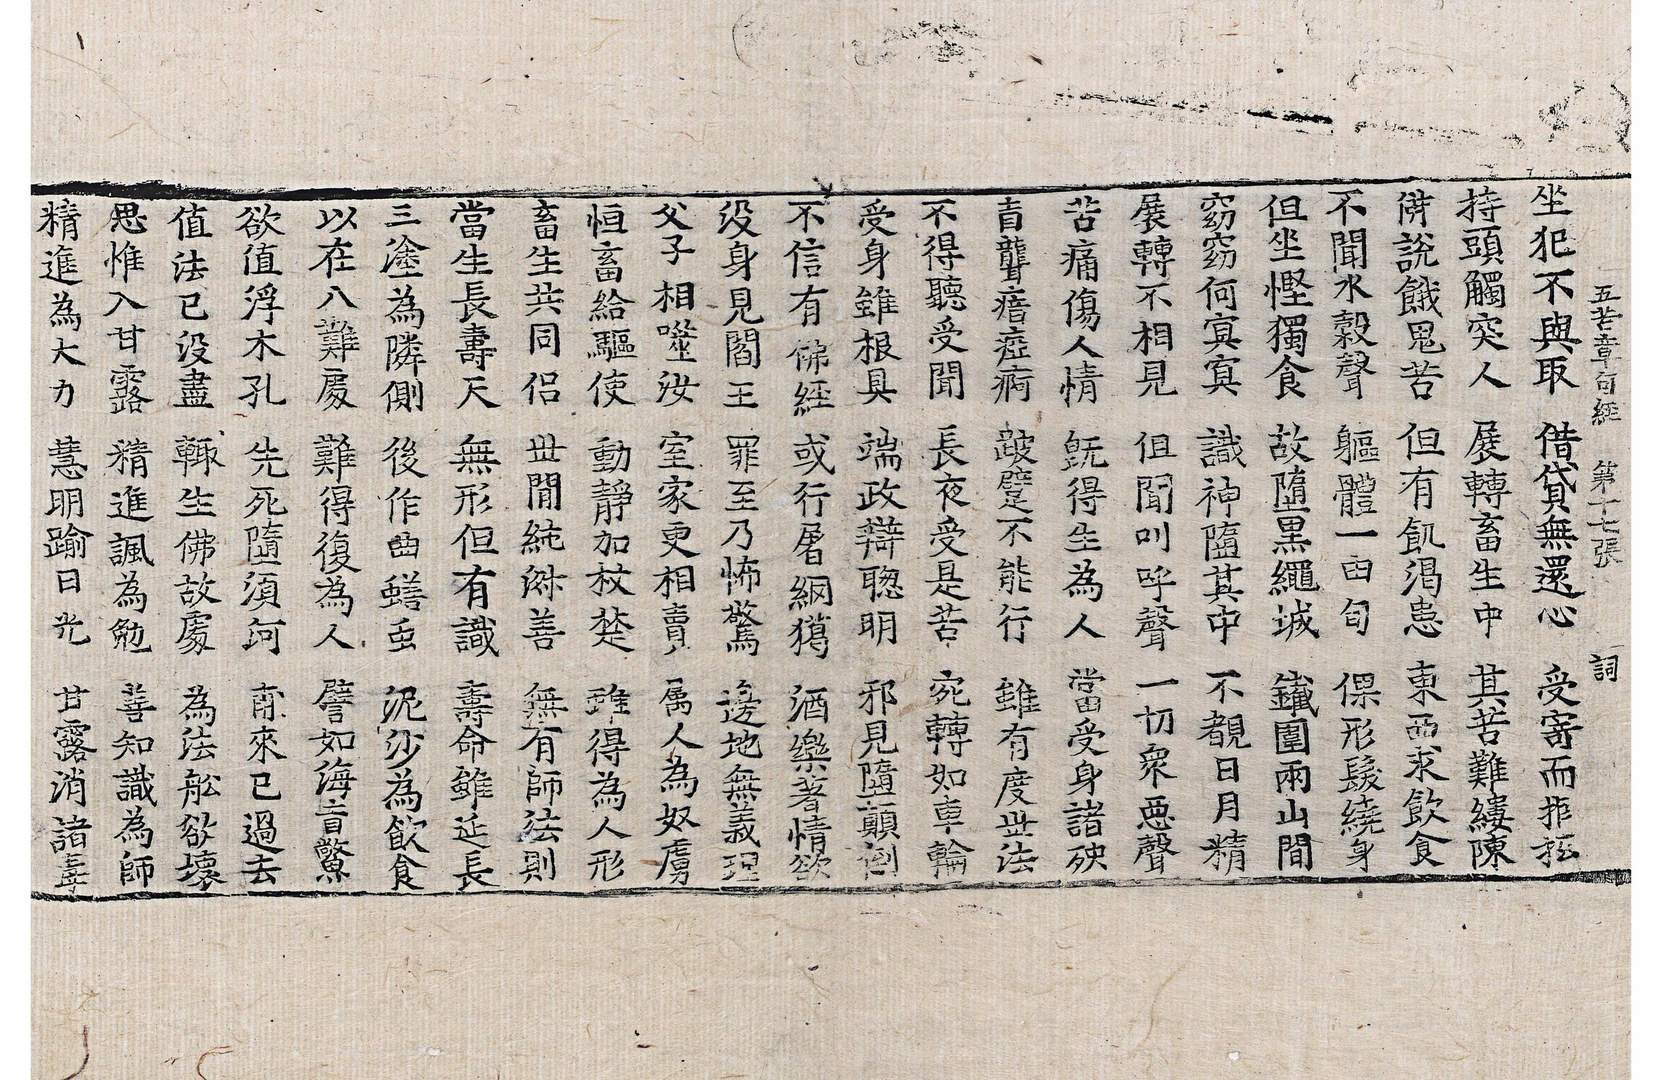 五苦章句經 第十七張 詞
坐犯不與取 借貸無還心 受寄而拒抵
持頭觸突人 展轉畜生中 其苦難縷陳
佛說餓鬼苦 但有飢渴患 東西求飲食
不聞水穀聲 軀體一由旬 倮形髮繞身
但坐慳獨食 故墮黑繩城 鐵圍兩山間
窈窈何冥冥 識神墮其中 不覩日月精
展轉不相見 但聞叫呼聲 一切衆惡聲
苦痛傷人情 旣得生為人 當受身諸殃
盲聾瘖瘂痾 跛躄不能行 雖有度世法
不得聽受聞 長夜受是苦 宛轉如車輪
受身雖根具 端政辯聦明 邪見墮顛倒
不信有佛經 或行屠網獵 酒樂著情欲
没身見閻王 罪至乃怖驚 邊地無義理
父子相噬汝 室家更相賣 属人為奴虜
恒畜給驅使 動靜加杖楚 雖得為人形
畜生共同侣 世閒純 善 無有師法則
當生長壽天 無形但有識 壽命雖延長
三塗為隣側 後作曲蟮虫 泥沙為飲食
以在八難處 難得復為人 譬如海盲鱉
欲值浮木孔 先死墮須河 甫來已過去
值法已没盡 輙生佛故處 為法舩欲壞
思惟入甘露 精進諷為勉 善知識為師
精進為大力 慧明踰日光 甘露消諸毒